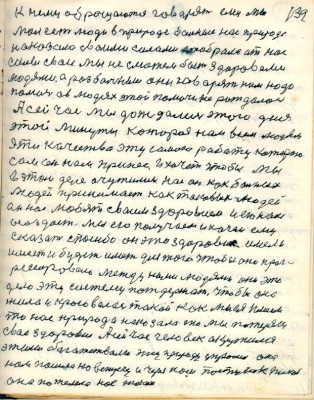 К нему обращаются говорят ему мы 139
люди в природе больные нас природе
наказала своими силами отобрала от нас
силы свои мы не сможем быть здоровыми
людями, а разе больным они говорят ним надо
помочь а в людях этой помочи не рождалось
А сейчас мы дождались этого дня
этой минуты которая нам всем людям
эти качества эту самою работу которую
сам он нам принес и хочет чтобы мы
в этом деле очутились нас он как больных
людей принимает как таковых людей
он нас любит своим здоровием и его нам
мы его получаем и хотим ему
сказать спасибо он это здоровие имел
имеет и будет иметь для того чтобы оно прог
рессировало между нами людями оно это
дело эту систему чтобы она
жила и такой как мы имели
то нас природа наказала мы потеряли
свое здоровие А сейчас человек окружился
этими богатствами эту природу упросил она
нам пошла на встречу и через наш поступок
она пожелала нас